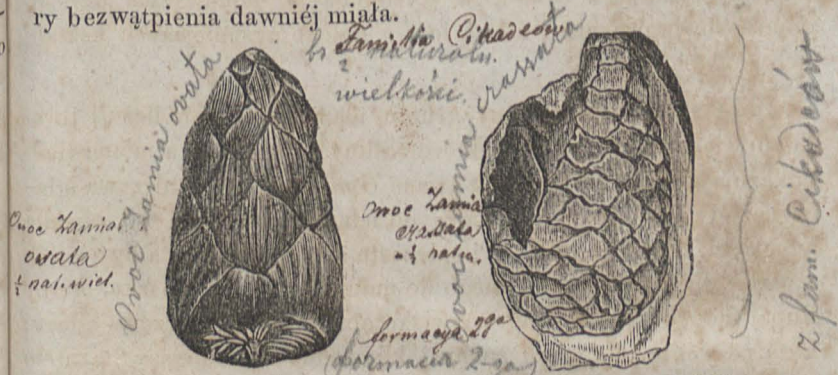 ry bezwątpienia dawniéj miała.
Familia Cikadeów
½ naturaln.
wielkości.
Owoc Zamia ovata
Owoc Zamia
ovata
½ nat. wiel.
Owoc Zamia
crassata
½ nat. w.
Owoc Zamia crassata
formacya 2ga
(formacia 2-ga)
z fam. Cikadeów